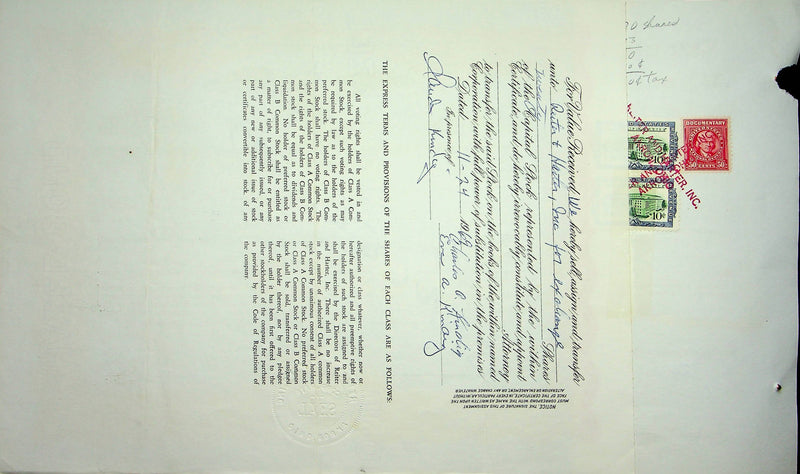 THE EXPRESS TERMS AND PROVISIONS OF THE SHARES OF EACH CLASS ARE AS FOLLOWS:
All voting rights shall be vested in and
be exercised by the holders of Class A Com-
mon Stock, except such voting rights as may
be required by law as to the holders of the
preferred stock. The holders of Class B Com-
mon Stock shall have no voting rights. The
rights of the holders of Class A Common Stock
and the rights of the holders of Class B Com-
mon stock shall be equal as to dividends and
liquidation. No holder of preferred stock or
Class B Common Stock shall be entitled as
a matter of right, to subscribe for or purchase
any part of any subsequently issued, or any
part of any new or additional issue of stock
or certificates convertible into stock, of any
designation or class whatever, whether now or
hereafter authorized and all preemptive rights of
the holders of such stock are assigned to and
shall be exercised by the Directors of Reiter
and Harter, Inc. There shall be no increase
in the number of authorized Class A common
stock except by unanimous consent of all holders
of Class A Common Stock. No preferred stock
or Class A Common Stock or Class B Common
Stock shall be sold, transferred or assigned
by the holder thereof, nor by any pledgee
thereof, until it has been first offered to the
other stockholders of the company for purchase
as provided by the Code of Regulations of
the company.
For Value Received, We hereby sell, assign and transfer
unto Reiter & Harter, Inc for exchange
Twenty Shares
of the Capital Stock represented by the within
Certificate, and do hereby irrevocably constitute and appoint
Attorney
to transfer the said Stock on the books of the within named
Corporation with full power of substitution in the premises
Dated 11-24 1969
In presence of
NOTICE. THE SIGNATURE OF THIS ASSIGNMENT
MUST CORRESPOND WITH THE NAME AS WRITTEN UPON THE
FACE OF THE CERTIFICATE, IN EVERY PARTICULAR, WITHOUT
ALTERATION OR ENLARGEMENT, OR ANY CHANGE WHATEVER
DOCUMENTARY
10¢
10¢
shares
tax